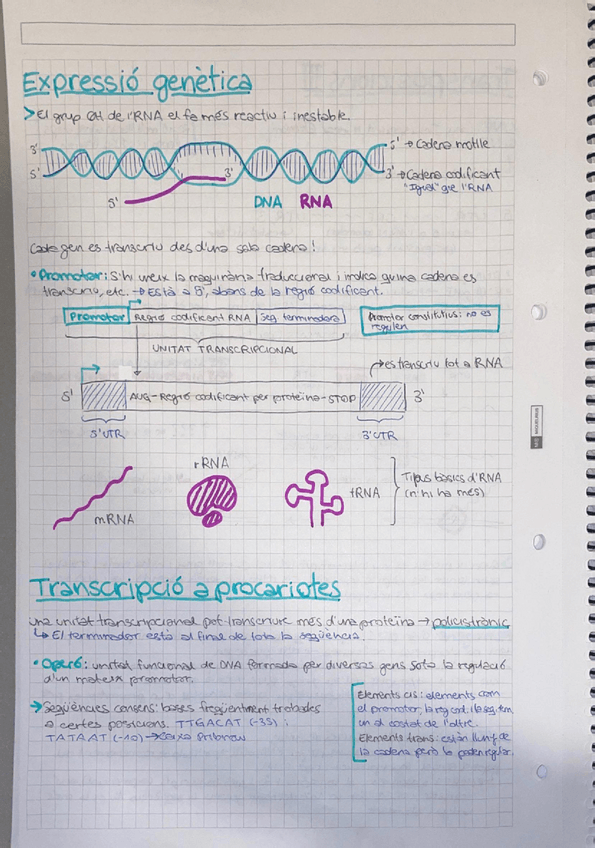 Expressió genètica
> El grup OH de l'RNA el fa més reactiu i inestable.
3'
5' → Cadena motlle
5'
3'
3' → Cadena codificant
"Igual" que l'RNA
5'
DNA RNA
Cada gen es transcriu des d'una sola cadena!
• Promotor: S'hi uneix la maquinària traduccional i indica quina cadena es
transcriu, etc. → Està a 5', abans de la regió codificant.
Promotor Regió codificant RNA Seq terminadora
Promotor constitutius: no es
regulen
UNITAT TRANSCRIPCIONAL
es transcriu tot a RNA
5' AUG-Regió codificant per proteïna-STOP 3'
5'UTR 3'UTR
rRNA
mRNA
tRNA
Tipus bàsics d'RNA
(n'hi ha més)
Transcripció a procariotes
Una unitat transcripcional pot transcriure més d'una proteïna → policistrònic
↳ El terminador està al final de tota la seqüència.
• Operó: unitat funcional de DNA formada per diversos gens sota la regulació
d'un mateix promotor.
→ Seqüències consens: bases freqüentment trobades
a certes posicions. TTGACAT (-35) i
TATAAT (-10) → Caixa Pribnow
Elements cis: elements com
el promotor, la reg cod. i la seq. tem
un al costat de l'altre.
Elements trans: estan lluny de
la cadena però la poden regular.